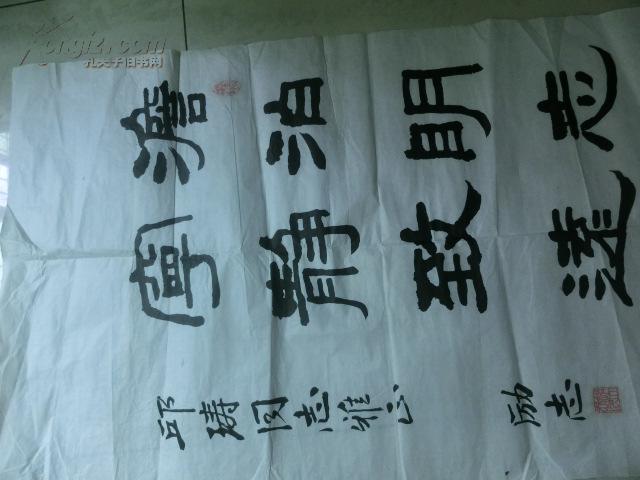 澹泊明志
寧靜致遠
邱同志雅正
励志
Kongfz.com
孔夫子旧书网